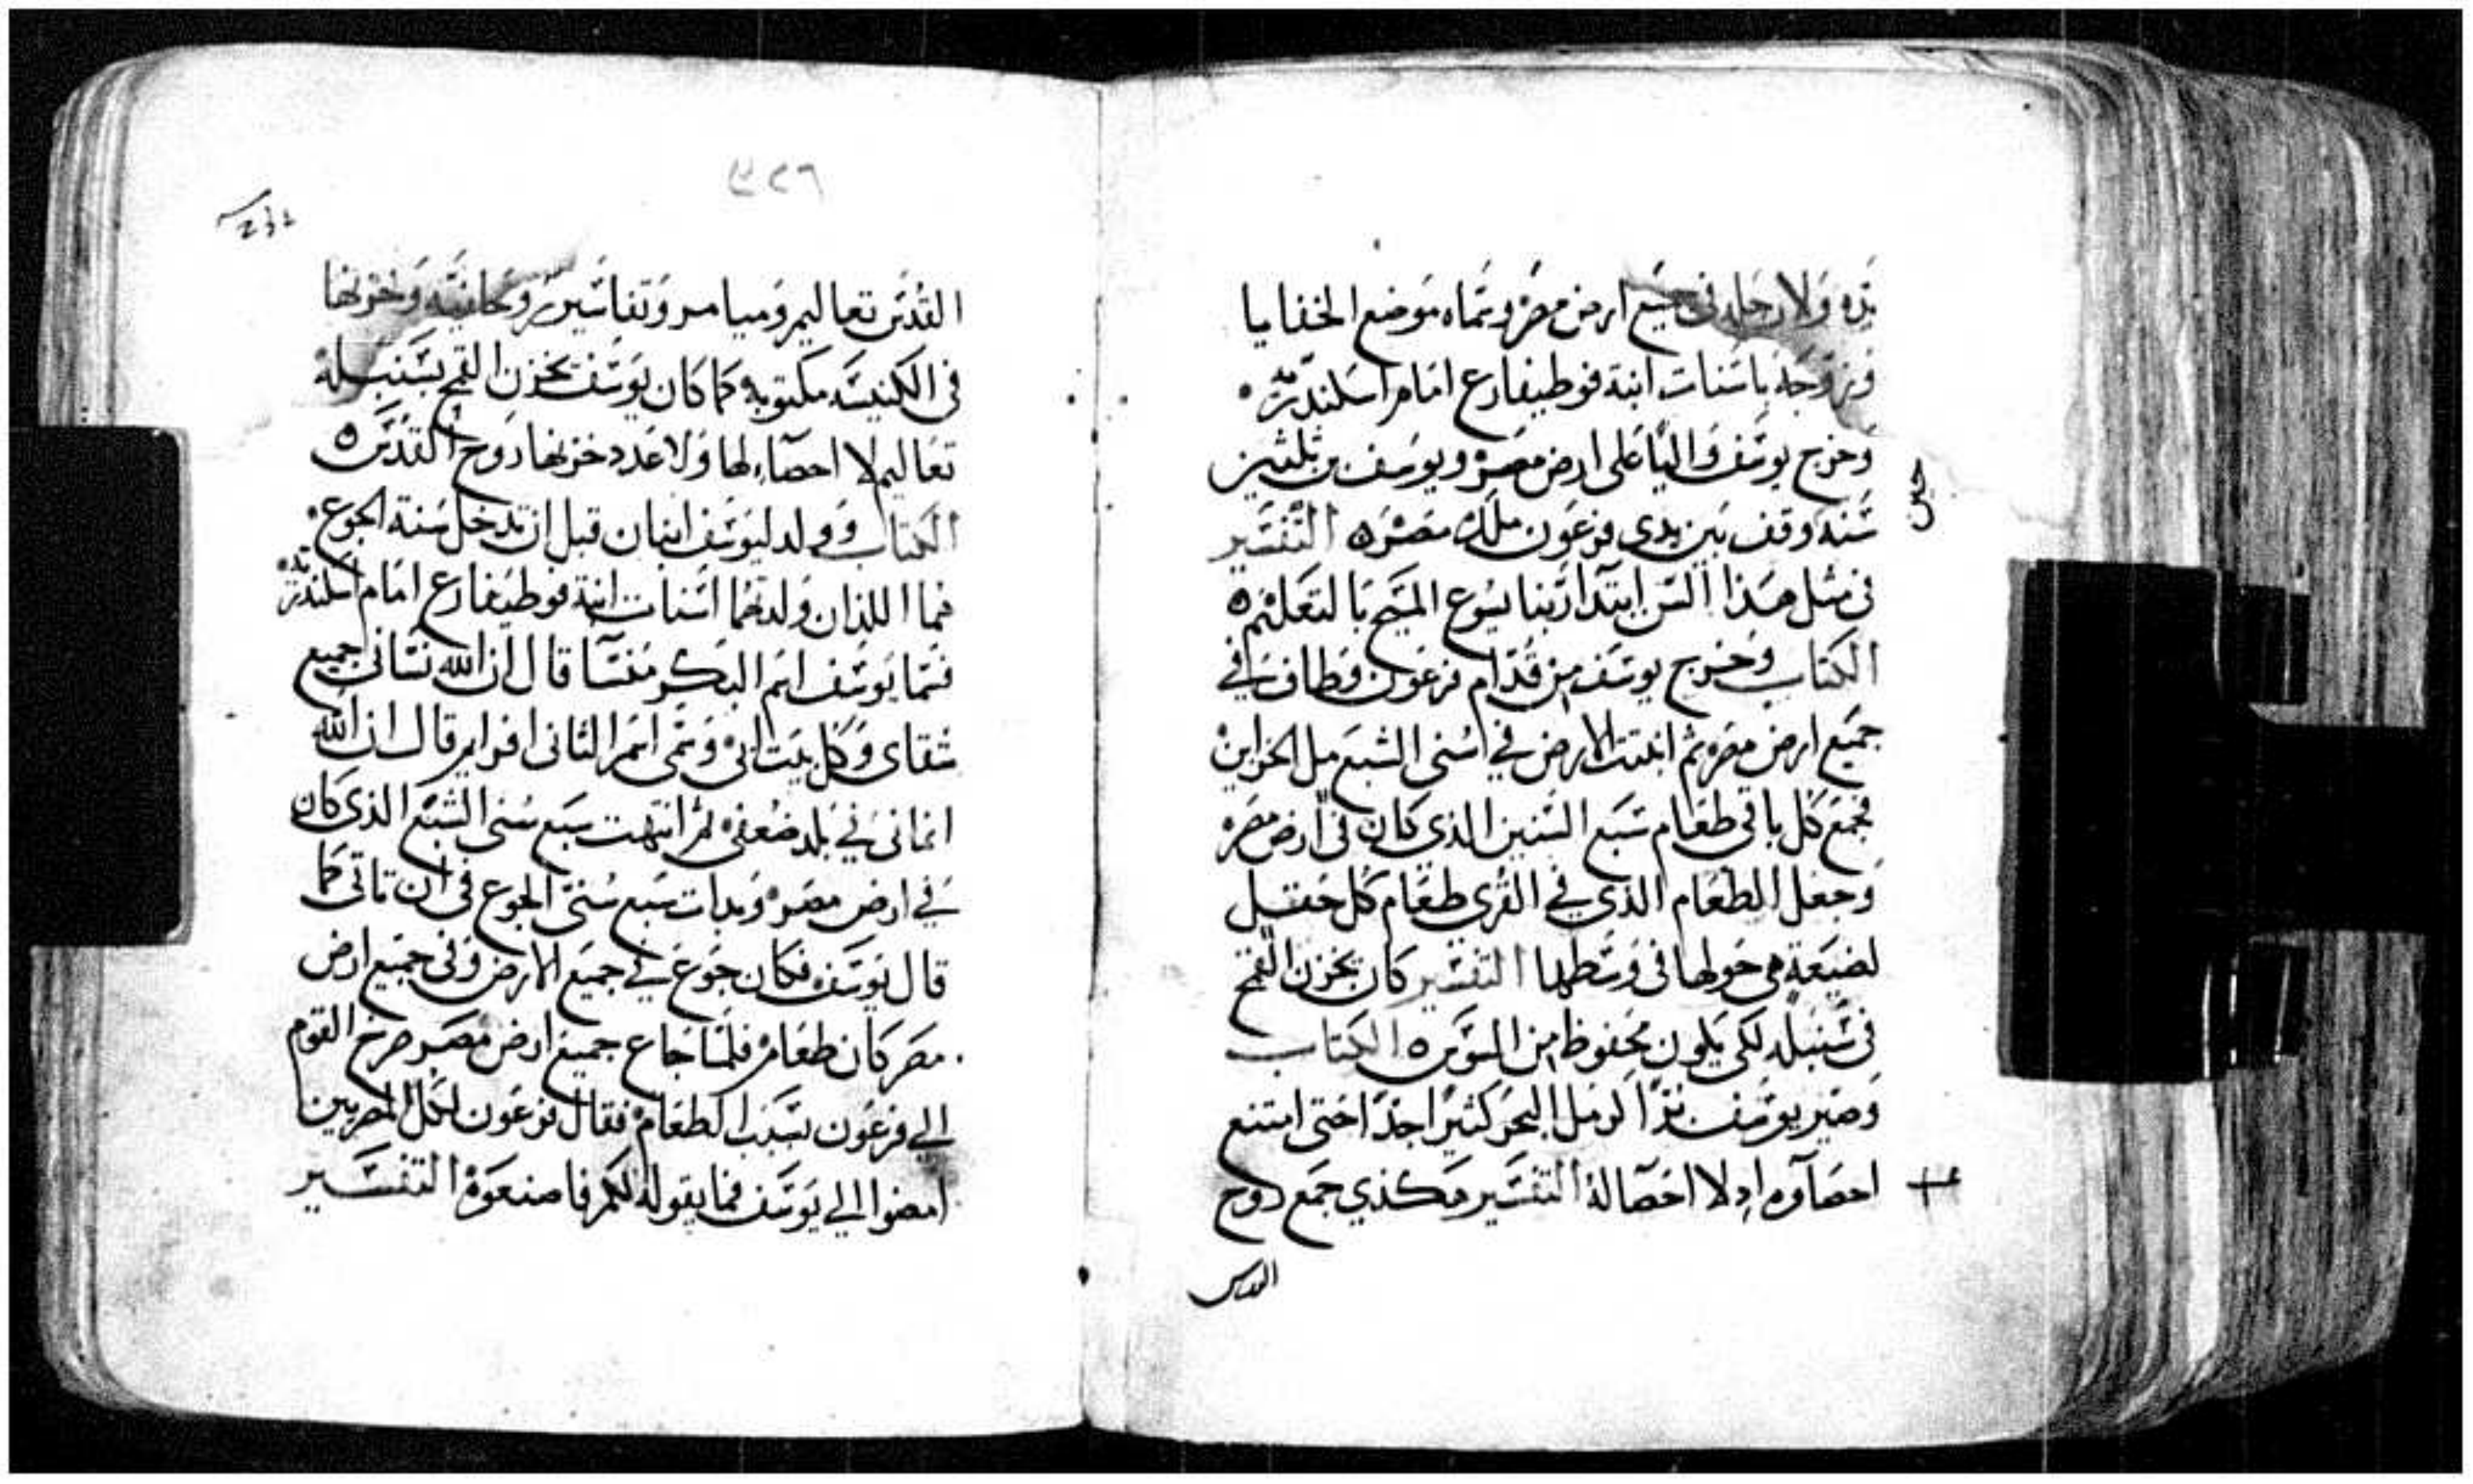 يده ولا رجله في جميع ارض مصر وسماه موضع الخفايا
وزوجه باسنات ابنة فوطيفارع امام اسكندريه
وخرج يوسف واليا على ارض مصر ويوسف بن ثلثين
حين
سنه وقف بين يدي فرعون ملك مصر ه التفسير
في مثل هذا السن ابتدا ربنا يسوع المسيح بالتعليم ه
الكتاب وخرج يوسف من قدام فرعون وطاف في
جميع ارض مصر ثم انبتت الارض في سني الشبع مل الخزاين
فجمع كل باقي طعام سبع السنين الذي كان في ارض مصر
وجعل الطعام الذي في القرى طعام كل حقل
لضيعة هي حولها في وسطها التفسير كان يخزن القمح
في سنبله لكي يكون محفوظ من السوس ه الكتاب
وصير يوسف برا كرمل البحر كثيرا جدا حتى امتنع
احصاوه اد لا احصا له التفسير هكذي جمع روح
القدس
٣٢٦
القدس تعاليم وميامر وتفاسير روحانيه وخزنها
في الكنيسه مكتوبه كما كان يوسف يخزن القمح بسنبله
تعاليم لا احصاء لها ولا عدد خزنها روح القدس ه
الكتاب وولد ليوسف ابنان قبل ان تدخل سنة الجوع
هما اللذان ولدتهما اسنات ابنة فوطيفارع امام اسكندريه
فسما يوسف اسم البكر منسا قال ان الله نساني جميع
شقاي وكل بيت ابي وسمى اسم الثاني افرام قال ان الله
انماني في بلد ضعفي ثم انتهت سبع سني الشبع الذي كان
في ارض مصر وبدات سبع سني الجوع في ان تاتي كما
قال يوسف فكان جوع في جميع الارض وفي جميع ارض
مصر كان طعام فلما جاع جميع ارض مصر صرخ القوم
الي فرعون بسبب الطعام فقال فرعون لكل المصريين
امضوا الي يوسف فما يقوله لكم فاصنعوه التفسير